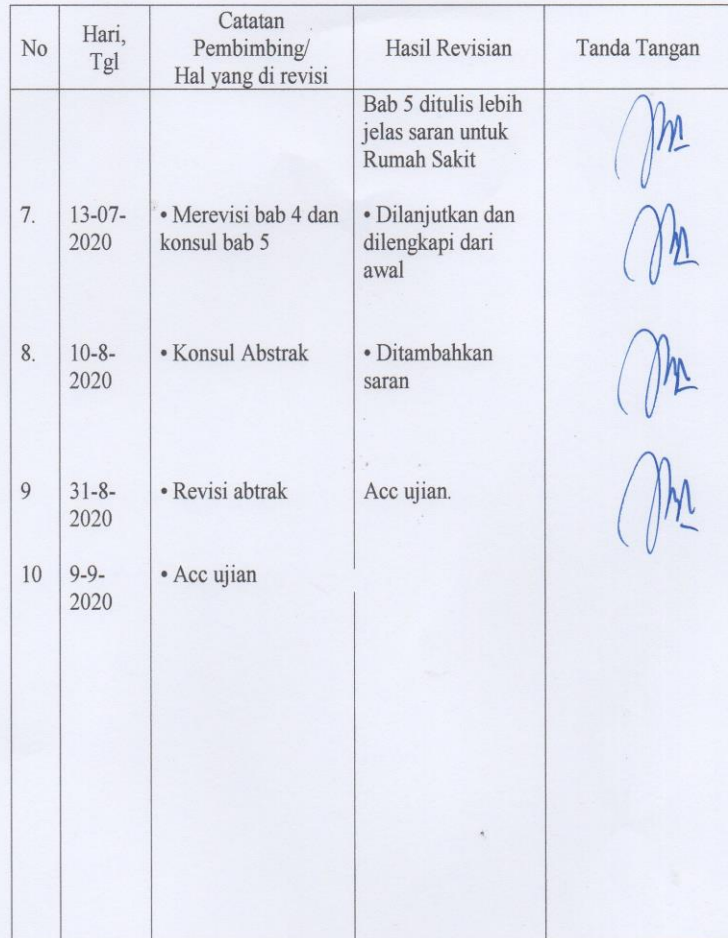 No
Hari,
Tgl
Catatan
Pembimbing/
Hal yang di revisi
Hasil Revisian
Tanda Tangan
Bab 5 ditulis lebih
jelas saran untuk
Rumah Sakit
7.
13-07-
2020
• Merevisi bab 4 dan
konsul bab 5
• Dilanjutkan dan
dilengkapi dari
awal
8.
10-8-
2020
• Konsul Abstrak
• Ditambahkan
saran
9
31-8-
2020
• Revisi abtrak
Acc ujian.
10
9-9-
2020
• Acc ujian